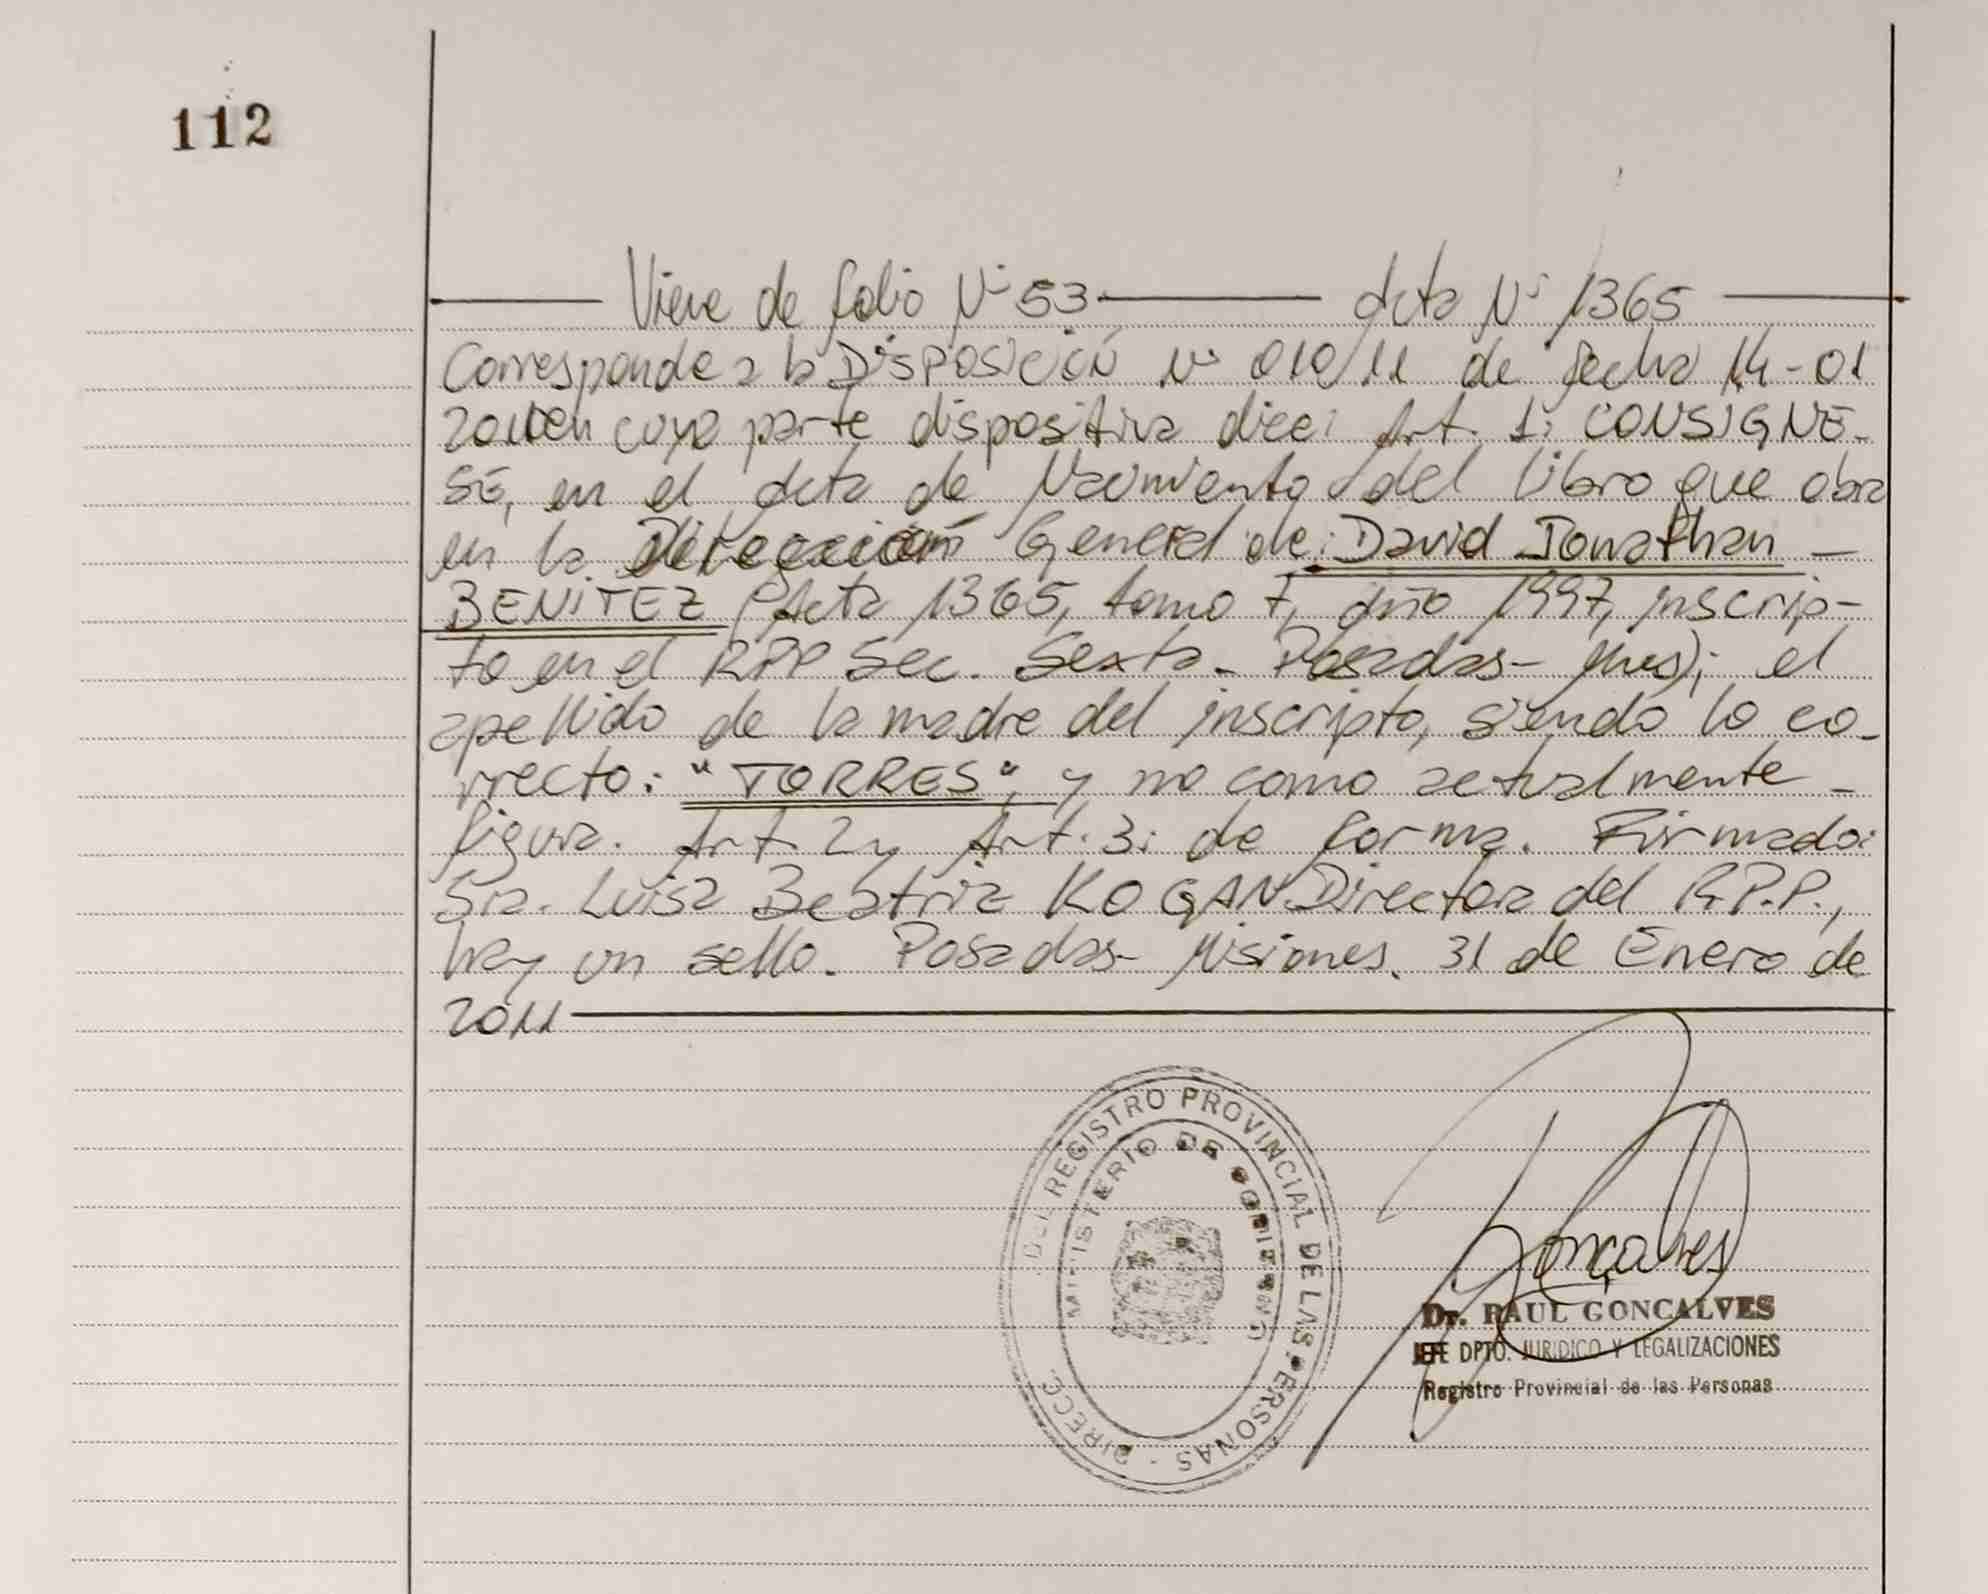 112
Viene de folio Nº 53 — Acta Nº 1365
Corresponde a la DISPOSICIÓN Nº 010/11 de fecha 14-01
2011 en cuya parte dispositiva dice: Art. 1: CONSIGNE-
SE, en el acta de Nacimiento del libro que obra
en la Dirección General de: David Jonathan —
BENITEZ (Acta 1365, tomo 7, año 1997, inscrip-
to en el RPP Sec. Sexta - Posadas - Mnes); el
apellido de la madre del inscripto, siendo lo co-
rrecto: "TORRES", y no como actualmente -
figura. Art. 2 y Art. 3: de forma. Firmado:
Sra. Luisa Beatriz KOGAN Directora del R.P.P.,
hay un sello. Posadas - Misiones. 31 de Enero de
2011
DIRECC DEL REGISTRO PROVINCIAL DE LAS PERSONAS -
MINISTERIO DE GOBIERNO
Goncalves
Dr. RAUL GONCALVES
JEFE DPTO. JURIDICO Y LEGALIZACIONES
Registro Provincial de las Personas